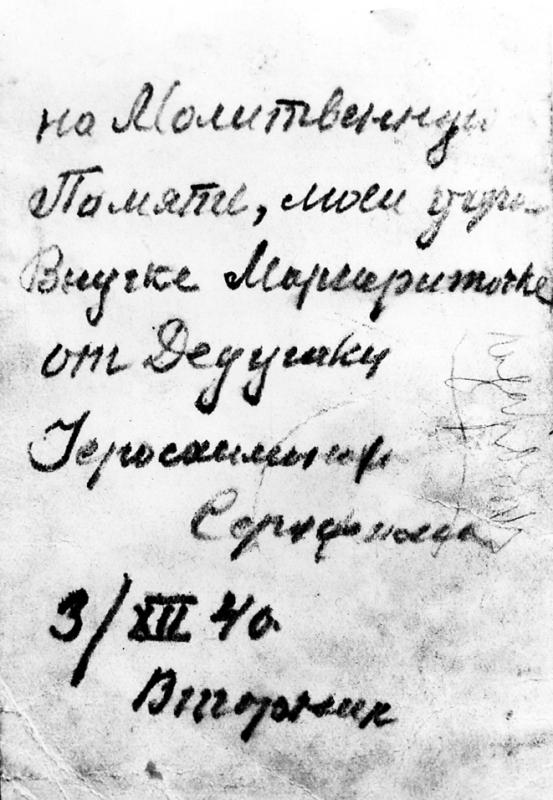 на Молитвенную
Память, моей
Внучке Маргариточке
от Дедушки
Іеросхимонаха
Серафима
3/XII 40.
Вторник